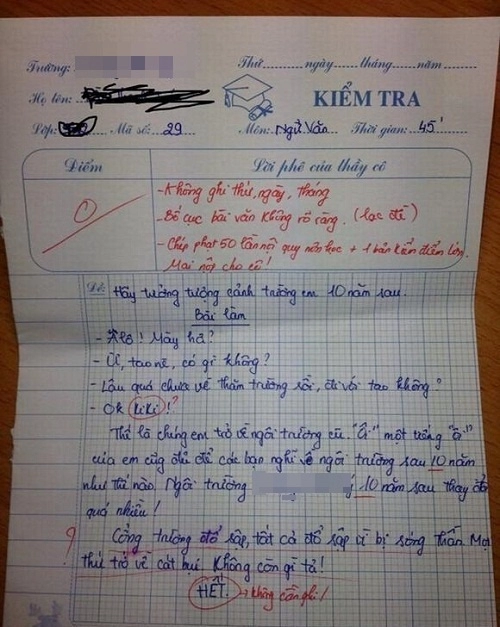 Trường:
Thứ...........ngày...........tháng...........năm...........
Họ tên:
KIỂM TRA
Lớp: Mã số: 29 Môn: Ngữ Văn Thời gian: 45'
Điểm
Lời phê của thầy cô
0
- Không ghi thứ, ngày, tháng
- Bố cục bài văn không rõ ràng. (lạc đề)
- Chép phạt 50 lần nội quy môn học + 1 bản kiểm điểm lớn.
Mai nộp cho cô!
Đề: Hãy tưởng tượng cảnh trường em 10 năm sau.
Bài làm
- Alô! Mày hả?
- Ừ, tao nè, có gì không?
- Lâu quá chưa về thăm trường rồi, đi với tao không?
- Ok kiki! ?
Thế là chúng em trở về ngôi trường cũ. "Ôi" một tiếng "ôi"
của em cũng đủ để các bạn nghĩ về ngôi trường sau 10 năm
như thế nào. Ngôi trường 10 năm sau thay đổi
quá nhiều!
? Cổng trường đổ sập, tất cả đổ sập vì bị sóng thần. Mọi
thứ trở về cát bụi. Không còn gì tả!
HẾT. → không cần ghi!